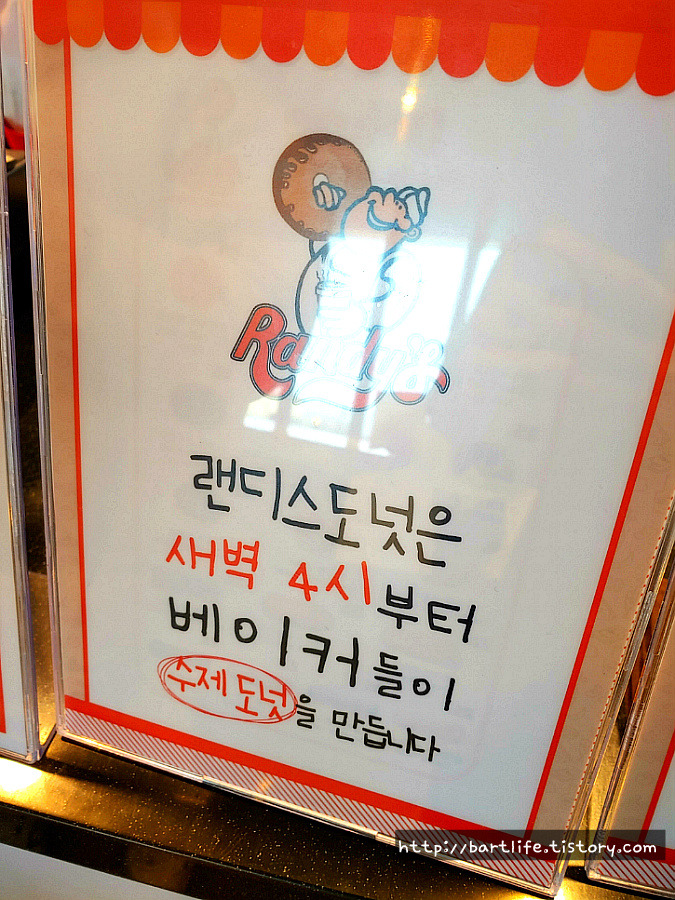 Randy's
랜디스도넛은
새벽 4시부터
베이커들이
수제도넛을 만듭니다
http://bartlife.tistory.com